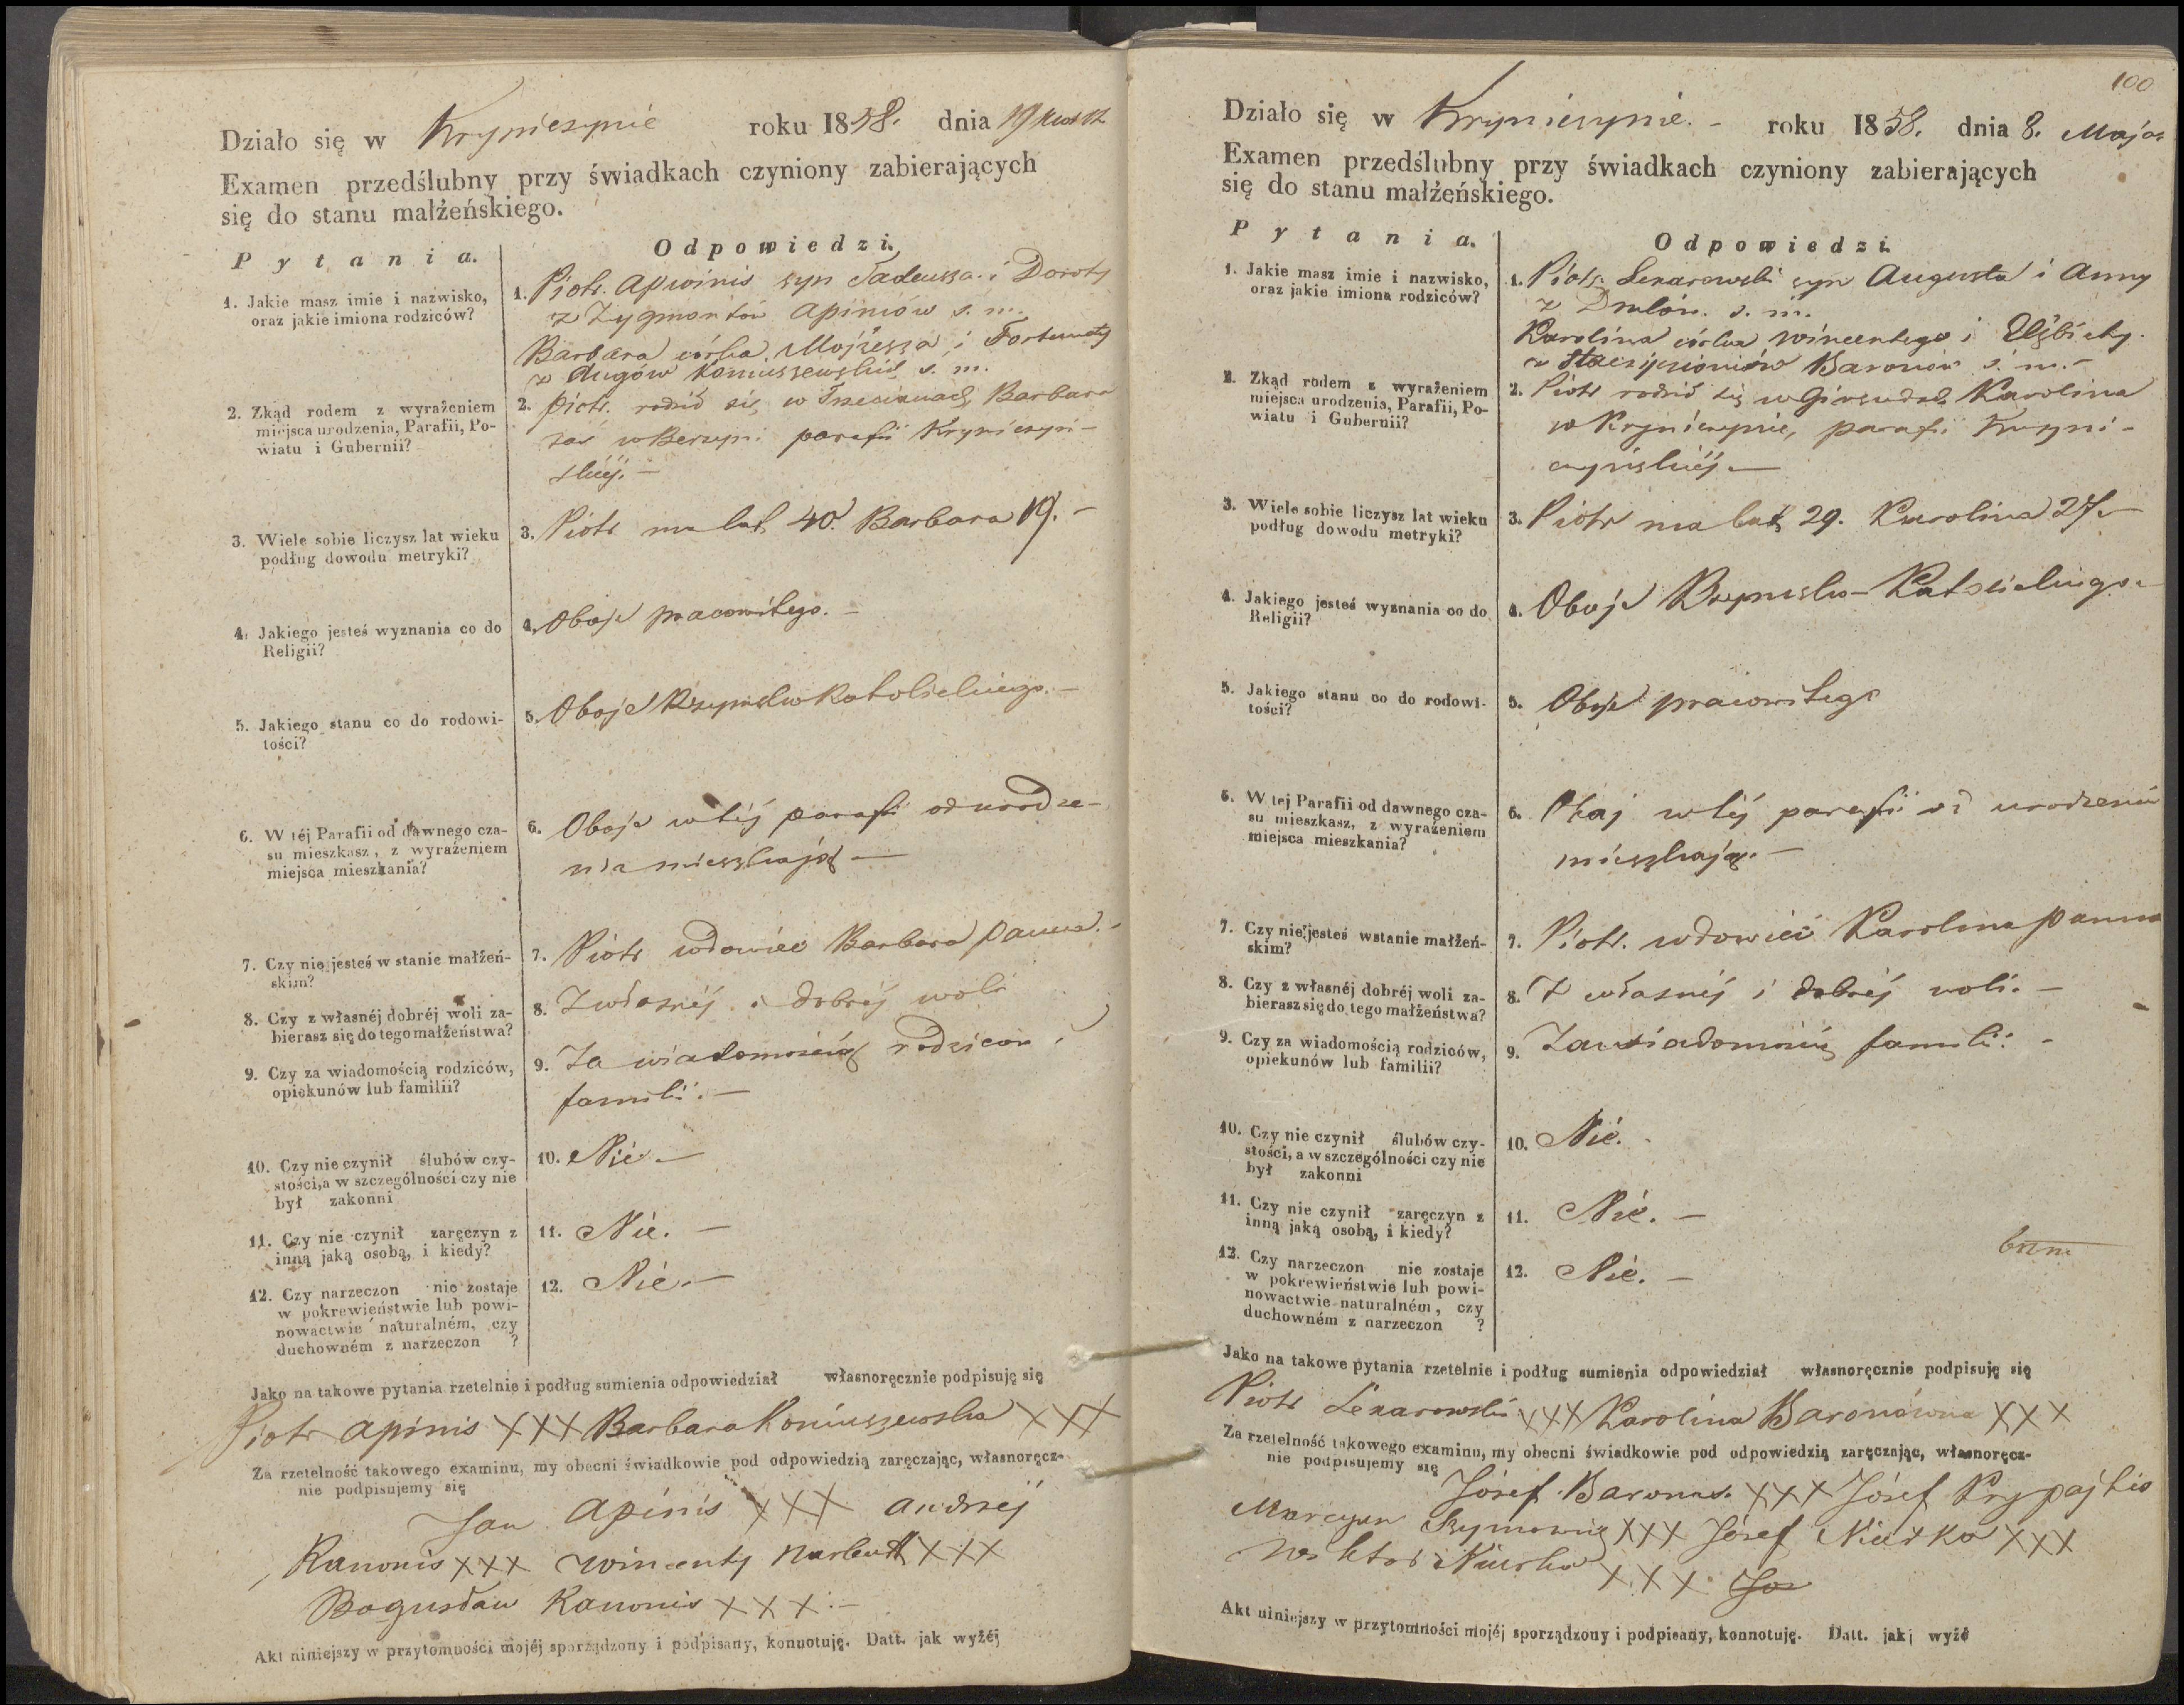 Działo się w Kryniczynie roku 1858. dnia 19
Examen przedślubny przy świadkach czyniony zabierających
się do stanu małżeńskiego.
P y t a n i a.
O d p o w i e d z i.
1. Jakie masz imie i nazwisko,
oraz jakie imiona rodziców?
1. Piotr. Apwinis syn Tadeusza i Doroty
z Zygmontów Apiniów s. m.
Barbara córka Mojżesza i Fortunaty
z Ługów Koniuszewskich s. m.
2. Zkąd rodem z wyrażeniem
miejsca urodzenia, Parafii, Po-
wiatu i Gubernii?
2. Piotr. rodził się w Barbara
zaś w parafii Kryniczyń-
skiéj. —
3. Wiele sobie liczysz lat wieku
podług dowodu metryki?
3. Piotr ma lat 40. Barbara 19. –
4. Jakiego jesteś wyznania co do
Religii?
4. Oboje pracowitego. –
5. Jakiego stanu co do rodowi-
tości?
5. Oboje Rzymsko Katolickiego. –
6. W téj Parafii od dawnego cza-
su mieszkasz, z wyrażeniem
miejsca mieszkania?
6. Oboje w téj parafii od urodze-
nia mieszkają —
7. Czy nie jesteś w stanie małżeń-
skim?
7. Piotr wdowiec Barbara panna. -
8. Czy z własnéj dobréj woli za-
bierasz się do tego małżeństwa?
8. Z własnéj i dobréj woli
9. Czy za wiadomością rodziców,
opiekunów lub familii?
9. Za wiadomością rodziców i
familii. —
10. Czy nie czynił ślubów czy-
stości, a w szczególności czy nie
był zakonni
10. Nie. —
11. Czy nie czynił zaręczyn z
inną jaką osobą, i kiedy?
11. Nie. —
12. Czy narzeczon nie zostaje
w pokrewieństwie lub powi-
nowactwie naturalném, czy
duchowném z narzeczon ?
12. Nie. —
Jako na takowe pytania rzetelnie i podług sumienia odpowiedział własnoręcznie podpisuję się
Piotr Apinis XXX Barbara Koniuszewska XXX
Za rzetelność takowego examinu, my obecni świadkowie pod odpowiedzią zaręczając, własnoręcz-
nie podpisujemy się
Jan Apinis XXX Andrzej
Kanonis XXX Wincenty Narbutt XXX
Bogusław Kanonis XXX. –
Akt niniejszy w przytomności mojéj sporządzony i podpisany, konnotuję. Datt. jak wyżéj
100
Działo się w Kryniczynie. - roku 1858. dnia 8. Maja
Examen przedślubny przy świadkach czyniony zabierających
się do stanu małżeńskiego.
P y t a n i a.
O d p o w i e d z i
1. Jakie masz imie i nazwisko,
oraz jakie imiona rodziców?
1. Piotr syn Augusta i Anny
z s. m.
Karolina córka Wincentego i Elżbiety.
z Baronów s. m. –
2. Zkąd rodem z wyrażeniem
miejsca urodzenia, Parafii, Po-
wiatu i Gubernii?
2. Piotr rodził się w Karolina
w Krynicynie, parafii Kryni-
czyńskiéj. —
3. Wiele sobie liczysz lat wieku
podług dowodu metryki?
3. Piotr ma lat 29. Karolina 27. –
4. Jakiego jesteś wyznania co do
Religii?
4. Oboje Rzymsko-Katolickiego. –
5. Jakiego stanu co do rodowi-
tości?
5. Oboje pracowitego
6. W tej Parafii od dawnego cza-
su mieszkasz, z wyrażeniem
miejsca mieszkania?
6. w téj parafii od urodzenia
mieszkają. —
7. Czy nie jesteś wstanie małżeń-
skim?
7. Piotr. wdowiec Karolina panna
8. Czy z własnéj dobréj woli za-
bierasz się do tego małżeństwa?
8. Z własnéj i dobréj woli. —
9. Czy za wiadomością rodziców,
opiekunów lub familii?
9. Za wiadomością familii. -
10. Czy nie czynił ślubów czy-
stości, a w szczególności czy nie
był zakonni
10. Nie.
11. Czy nie czynił zaręczyn z
inną jaką osobą, i kiedy?
11. Nie. —
12. Czy narzeczon nie zostaje
w pokrewieństwie lub powi-
nowactwie naturalném, czy
duchowném z narzeczon ?
12. Nie. —
Jako na takowe pytania rzetelnie i podług sumienia odpowiedział własnoręcznie podpisuję się
Piotr XXX Karolina Baronówna XXX
Za rzetelność takowego examinu, my obecni świadkowie pod odpowiedzią zaręczając, własnoręcz-
nie podpisujemy się
Józef Baronas. XXX Józef Krypajtis
Marcyan Szymowicz XXX Józef Niurko XXX
Wiktor Niurko XXX
Akt niniejszy w przytomności mojéj sporządzony i podpisany, konnotuję. Datt. jak wyżé